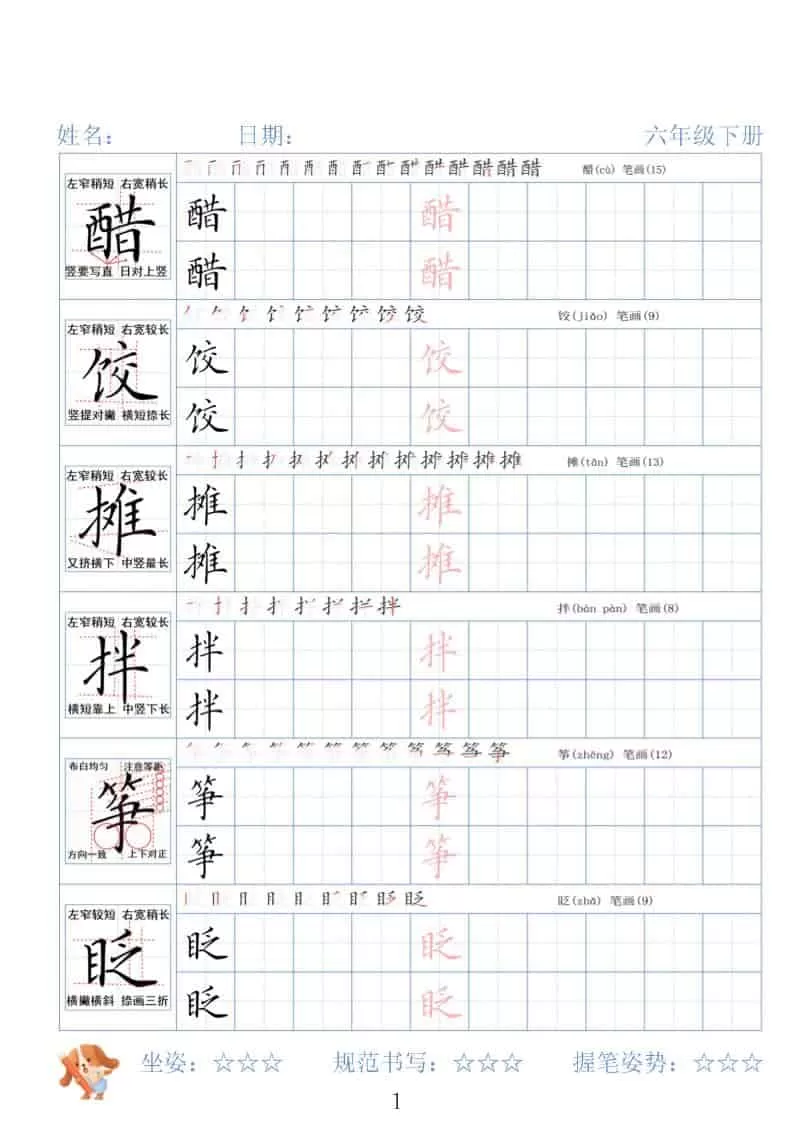 姓名： 日期： 六年级下册
左窄稍短 右宽稍长
醋
竖要写直 日对上竖
醋(cù) 笔画(15)
醋 醋
醋 醋
左窄稍短 右宽较长
饺
竖提对撇 横短捺长
饺(jiǎo) 笔画(9)
饺 饺
饺 饺
左窄稍短 右宽较长
摊
又挤横下 中竖最长
摊(tān) 笔画(13)
摊 摊
摊 摊
左窄稍短 右宽较长
拌
横短靠上 中竖下长
拌(bàn pàn) 笔画(8)
拌 拌
拌 拌
布白均匀 注意等距
筝
方向一致 上下对正
筝(zhēng) 笔画(12)
筝 筝
筝 筝
左窄较短 右宽稍长
眨
横撇横斜 捺画三折
眨(zhǎ) 笔画(9)
眨 眨
眨 眨
坐姿：☆☆☆ 规范书写：☆☆☆ 握笔姿势：☆☆☆
1